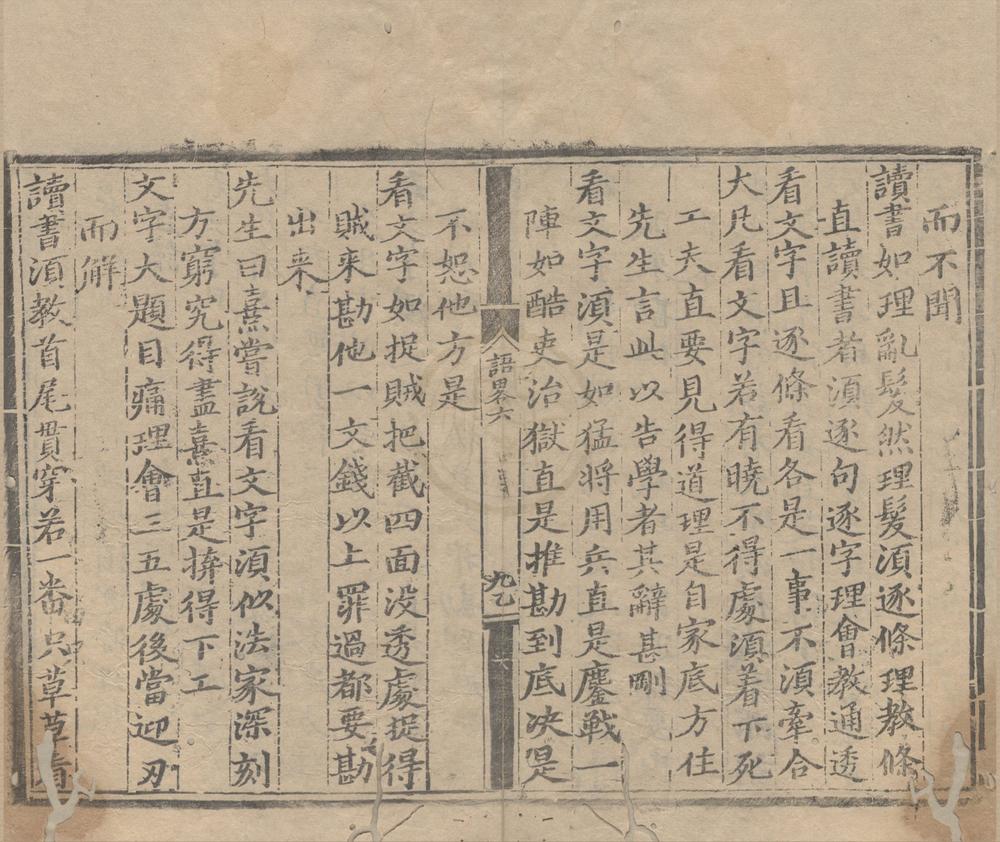 而不聞
讀書如理亂髮然理髮須逐條理教條
直讀書者須逐句逐字理會教通透
看文字且逐條看各是一事不須牽合
大凡看文字若有曉不得處須着下死
工夫直要見得道理是自家底方住
先生言此以告學者其辭甚剛
看文字須是如猛將用兵直是鏖戰一
陣如酷吏治獄直是推勘到底决是
不恕他方是
語畧六
九乙
看文字如捉賊把截四面没透處捉得
賊来勘他一文錢以上罪過都要勘
出来
先生曰熹嘗說看文字須似法家深刻
方窮究得盡熹直是拚得下工
文字大題目痛理會三五處後當迎刃
而解
讀書須教首尾貫穿若一番只草草看